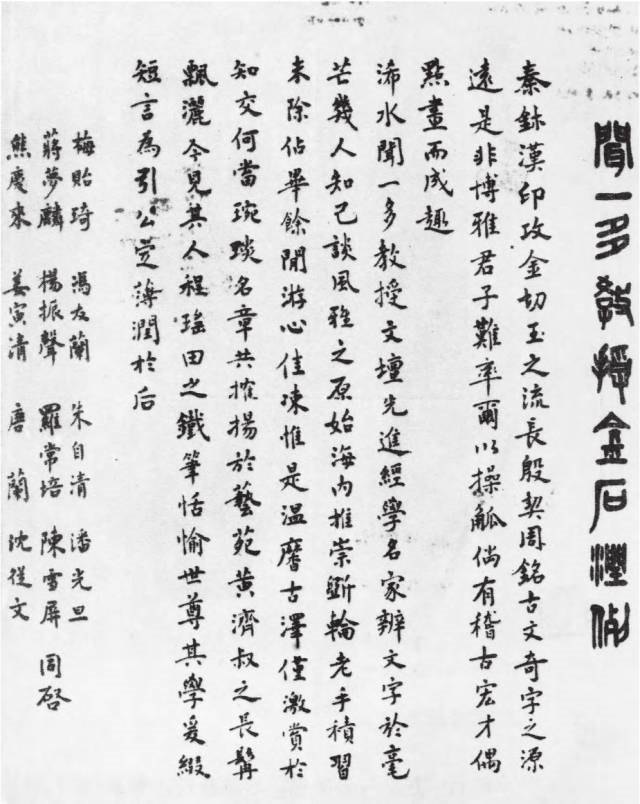 聞一多教授金石潤例
秦鉥漢印攻金切玉之流長殷契周銘古文奇字之源
遠是非博雅君子難率爾以操觚倘有稽古宏才偶
點畫而成趣
浠水聞一多教授文壇先進經學名家辨文字於毫
芒幾人知己談風雅之原始海內推崇斲輪老手積習
未除佔畢餘閒游心佳凍惟是溫麐古澤僅激賞於
知交何當琬琰名章共搉揚於藝苑黃濟叔之長髯
飄灑今見其人程瑤田之鐵筆恬愉世尊其學爰綴
短言為引公定薄潤於后
梅貽琦 馮友蘭 朱自清 潘光旦
蔣夢麟 楊振聲 羅常培 陳雪屏 同啓
熊慶來 姜寅清 唐蘭 沈從文